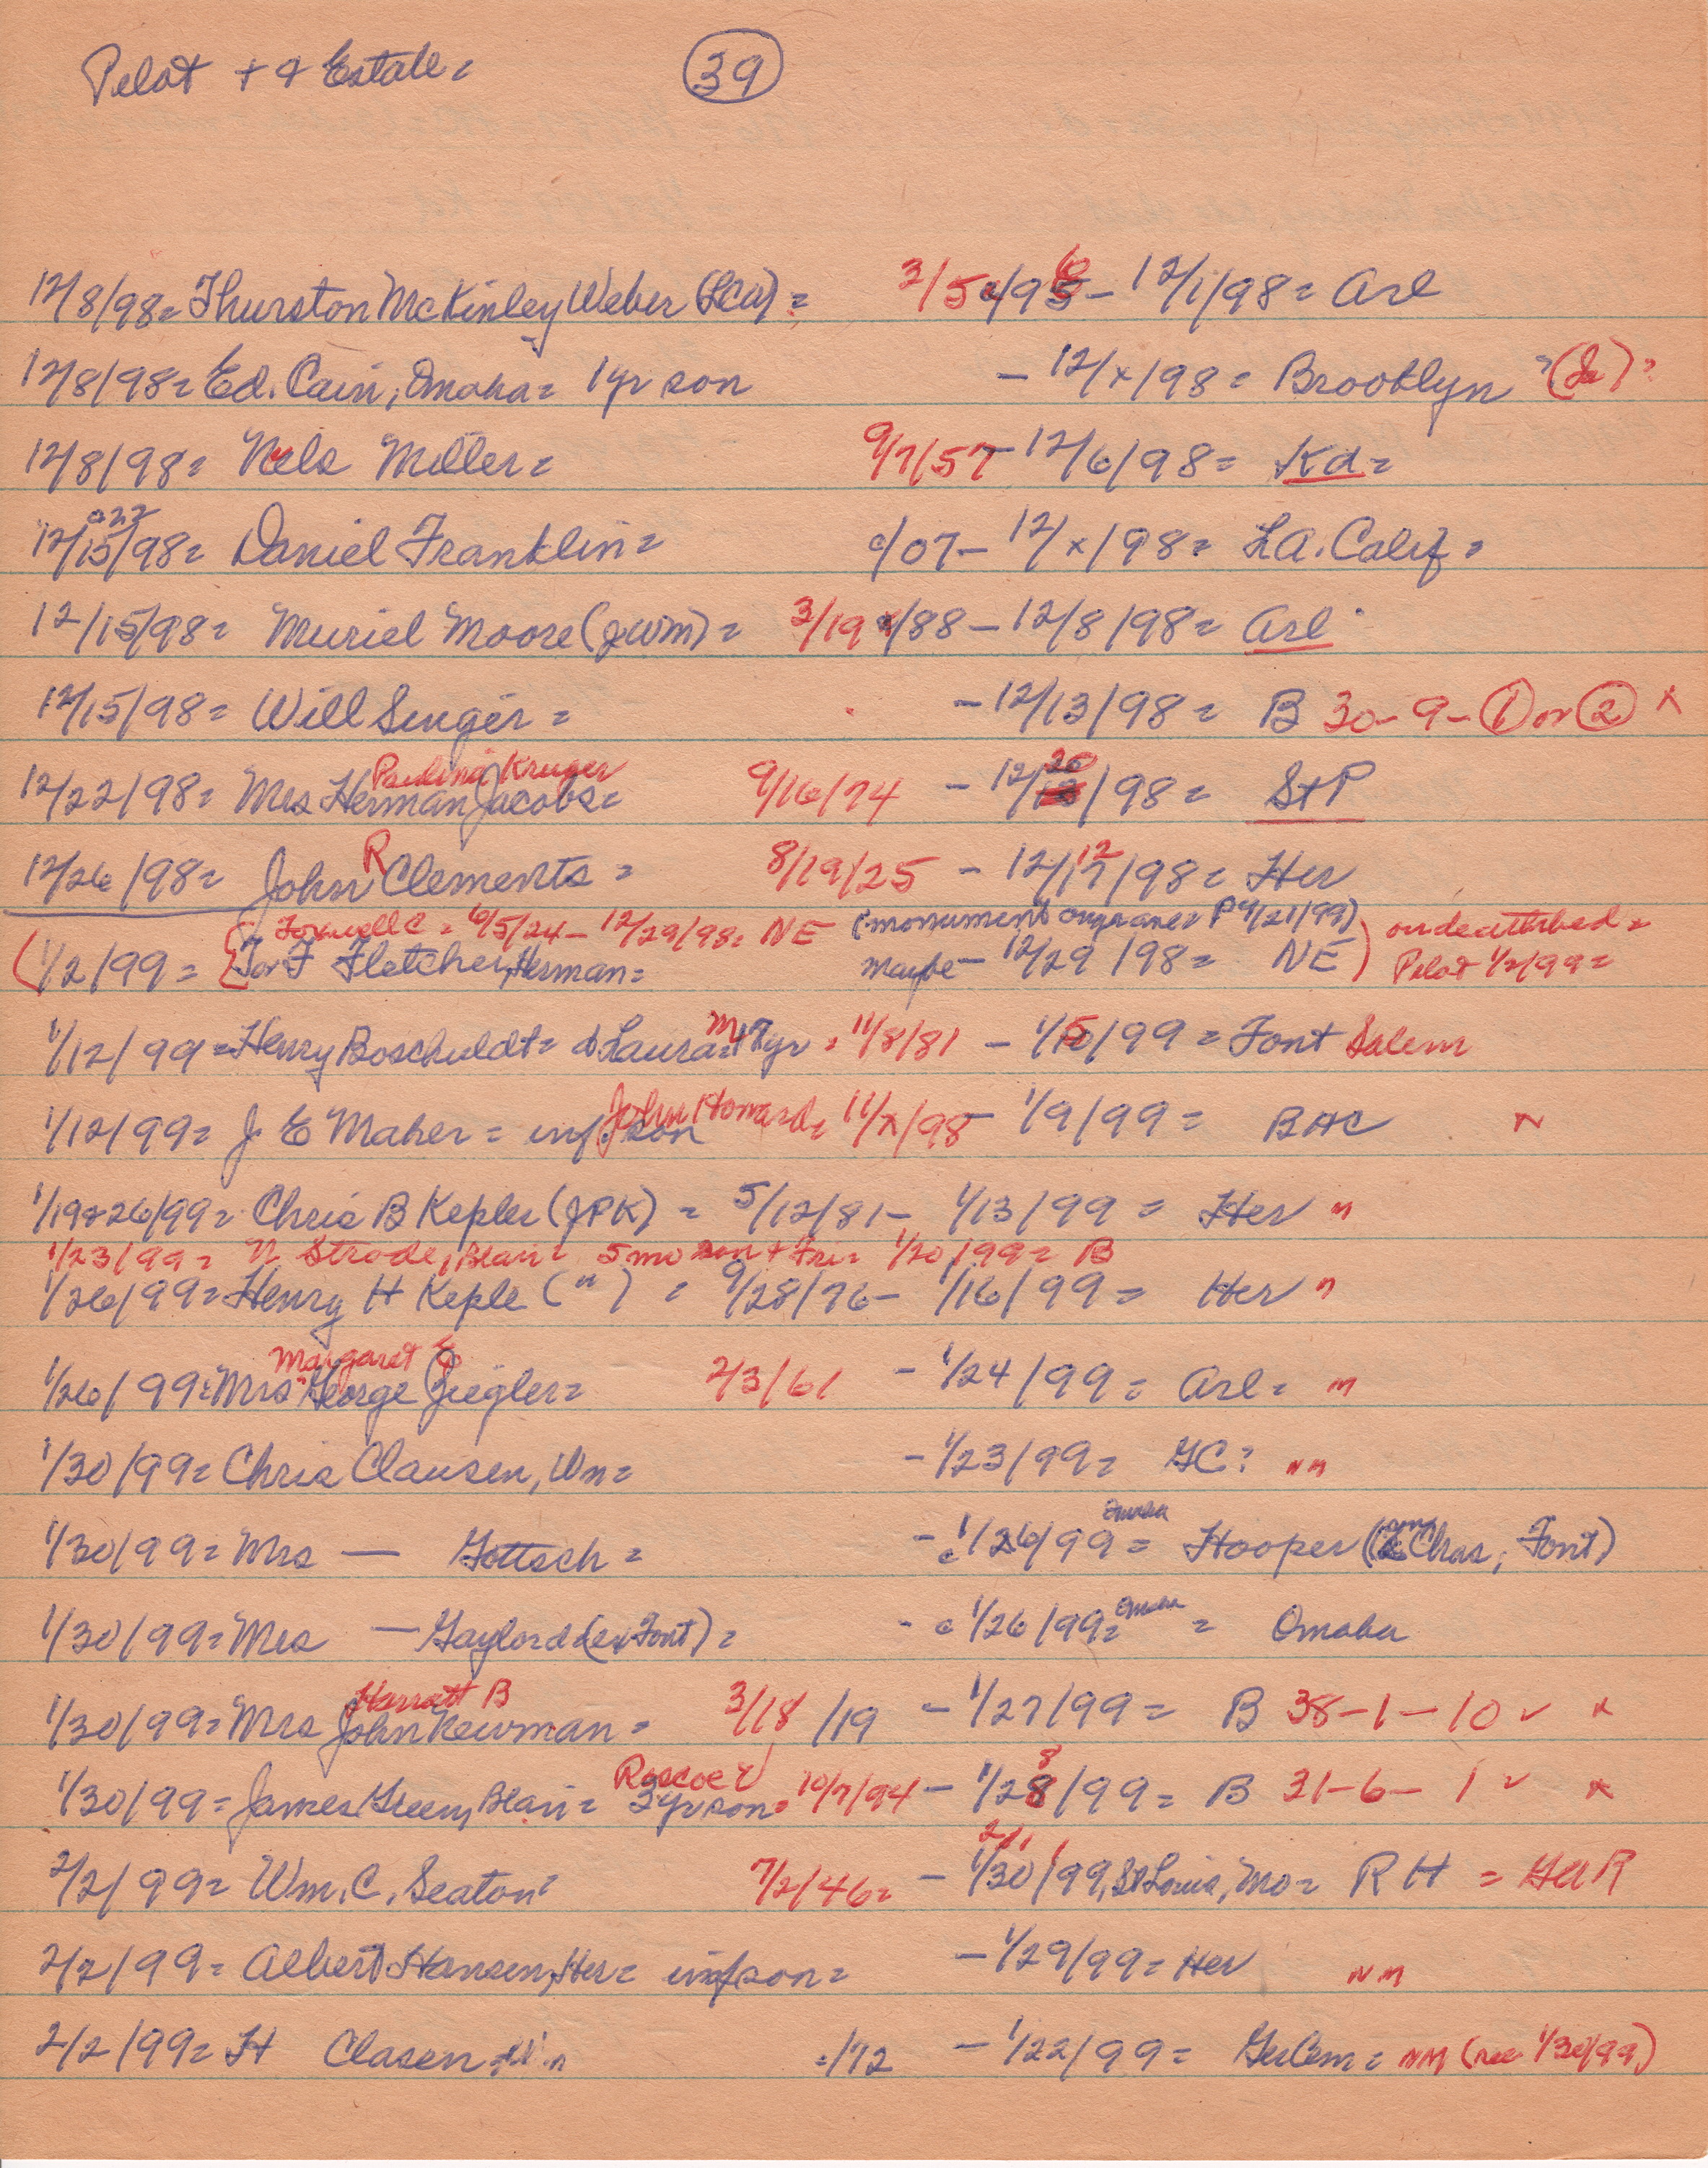 Pilot + 4 Estate = 39
12/8/98 = Thurston McKinley Weber (LCW) = 3/5/96 - 12/1/98 = Arl
12/8/98 = Ed. Cain, Omaha = 1 yr son - 12/x/98 = Brooklyn ?(Ia)?
12/8/98 = Nels Miller = 9/7/57 - 12/6/98 = Kd =
12/15/98 = Daniel Franklin = c/07 - 12/x/98 = LA. Calif =
12/15/98 = Muriel Moore (JWM) = 3/19/88 - 12/8/98 = Arl
12/15/98 = Will Singer = - 12/13/98 = B 30-9-① or ② x
Paulina Kruger
12/22/98 = Mrs Herman Jacobs = 9/16/74 - 12/20/98 = StP
12/26/98 = John R Clements = 8/19/25 - 12/12/98 = Her
Foxwell C = 6/5/24 - 12/29/98 = NE (monument engraver P 4/21/99) on deathbed =
(1/2/99 = J or F Fletcher, Herman = maybe - 12/29/98 = NE) Pilot 1/2/99 =
1/12/99 = Henry Boschuldt = d Laura M 17 yr = 11/8/81 - 1/5/99 = Font Salem
John Howard =
1/12/99 = J E Maher = inf son 11/x/98 - 1/9/99 = BHC
1/19+26/99 = Chris B Kepler (JPK) = 5/12/81 - 1/13/99 = Her "
1/23/99 = N Strode, Blair = 5 mo son + Fri = 1/20/99 = B
1/26/99 = Henry H Keple (") = 9/28/76 - 1/16/99 = Her "
Margaret E
1/26/99 = Mrs George Ziegler = 2/3/61 - 1/24/99 = Arl = "
1/30/99 = Chris Clausen, Wn = - 1/23/99 = GC? NM
1/30/99 = Mrs — Gottsch = - c 1/26/99 Omaha = Hooper (Chas, Font)
1/30/99 = Mrs — Gaylord (ex Font) = - c 1/26/99 = Omaha = Omaha
Harriett B
1/30/99 = Mrs John Newman = 3/18/19 - 1/27/99 = B 38-1-10 ✓ x
Roscoe E
1/30/99 = James Green, Blair = 3 yr son = 10/7/94 - 1/28/99 = B 31-6-1 ✓ x
2/1
2/2/99 = Wm. C. Seaton = 7/2/46 = - 1/30/99, St Louis, Mo = RH = HAR
2/2/99 = Albert Hansen, Her = inf son = - 1/29/99 = Her NM
2/2/99 = H Clasen = /72 - 1/22/99 = GerCem = NM (see 1/30/99)